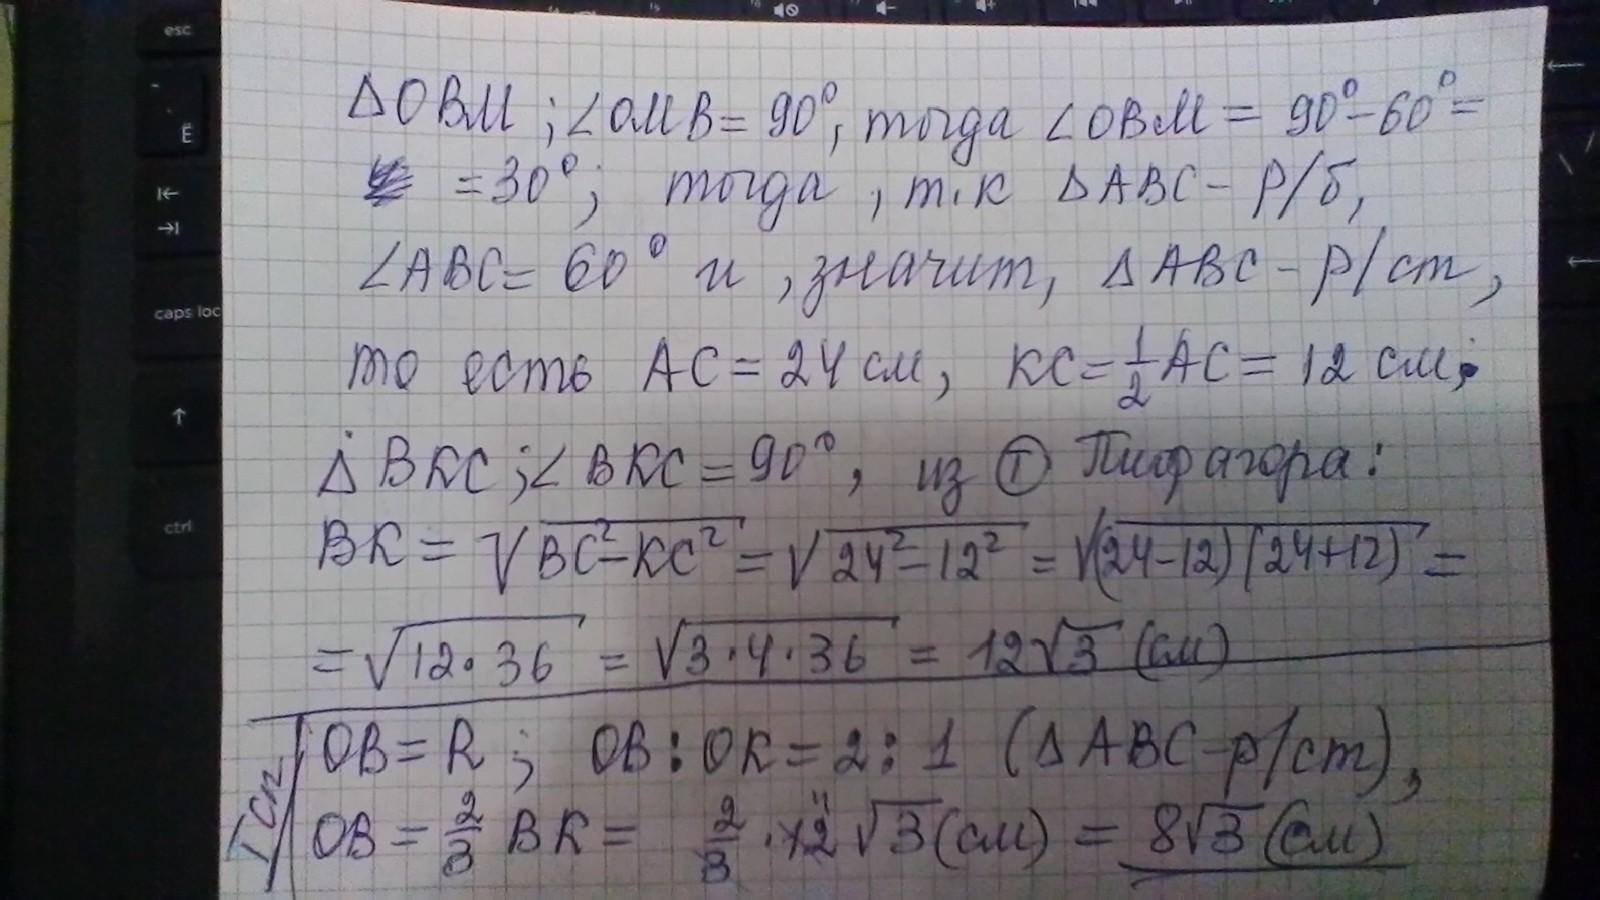 esc
Ё
caps loc
ctrl
ΔOBM; ∠OMB = 90°, тогда ∠OBM = 90° - 60° =
= 30°; тогда, т.к ΔABC - р/б,
∠ABC = 60° и, значит, ΔABC - р/ст,
то есть AC = 24 см, KC = 1/2 AC = 12 см;
ΔBKC; ∠BKC = 90°, из Ⓣ Пифагора:
BK = √(BC² - KC²) = √(24² - 12²) = √((24-12)(24+12)) =
= √(12·36) = √(3·4·36) = 12√3 (см)
I сп
OB = R; OB : OK = 2 : 1 (ΔABC - р/ст),
OB = 2/3 BK = 2/3 · 12 √3 (см) = 8√3 (см)